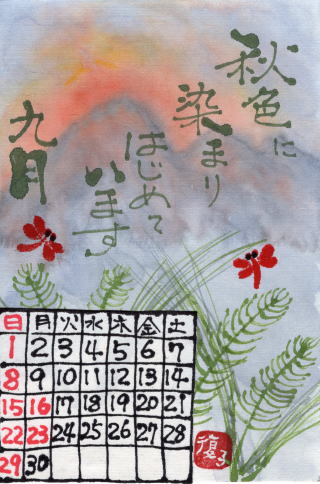 秋色に
染まり
はじめて
います
九月
日 月 火 水 木 金 土
1 2 3 4 5 6 7
8 9 10 11 12 13 14
15 16 17 18 19 20 21
22 23 24 25 26 27 28
29 30
復子